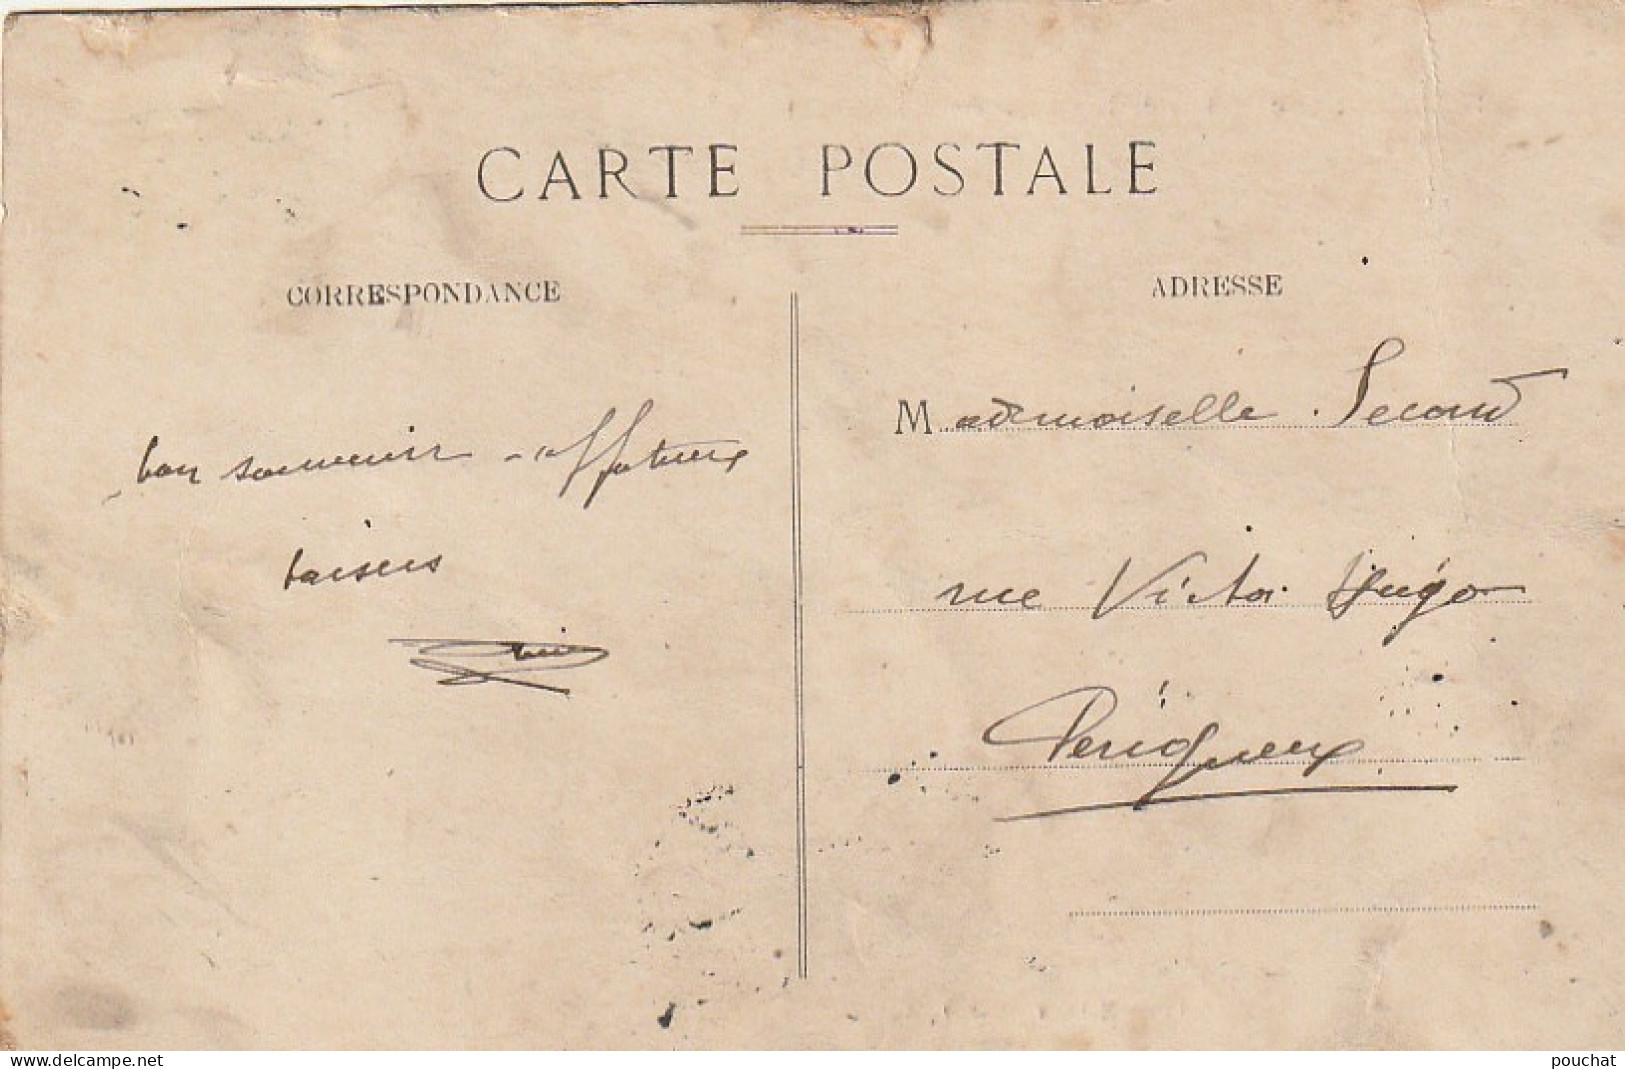 CARTE POSTALE
CORRESPONDANCE
bon souvenir affectueux
baisers
ADRESSE
Mademoiselle Second
rue Victor Hugo
Périgueux
www.delcampe.net
pouchat